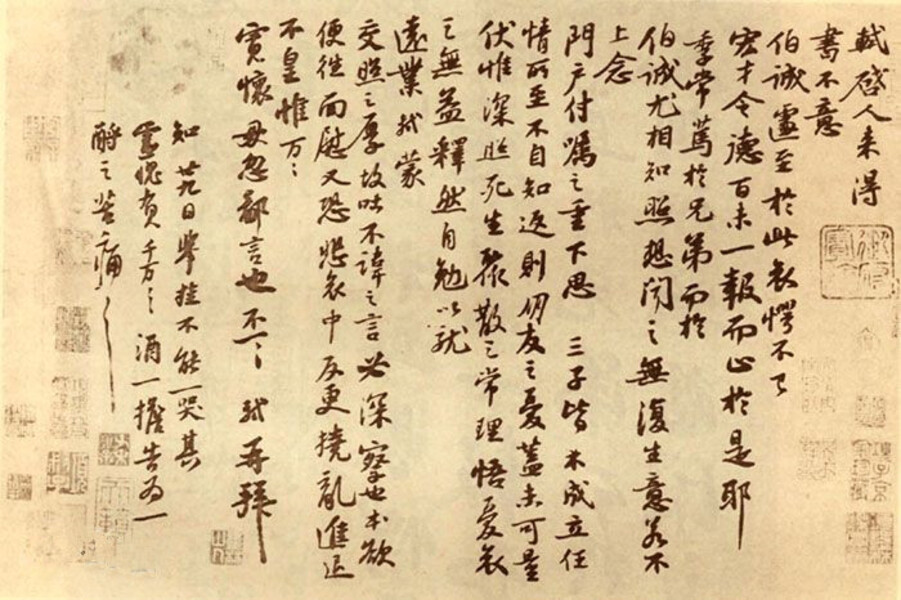 軾啓人來得
書不意
伯誠遽至於此哀愕不已
宏才令德百未一報而止於是耶
季常篤於兄弟而於
伯誠尤相知照想聞之無復生意若不
上念
門户付囑之重下思三子皆未成立任
情所至不自知返則朋友之憂蓋未可量
伏惟深照死生聚散之常理悟憂哀
之無益釋然自勉以就
遠業軾蒙
交照之厚故吐不諱之言必深察也本欲
便往面慰又恐悲哀中反更撓亂進退
不皇惟万〻
寬懷毋忽鄙言也不一〻軾再拜
知廿九日舉挂不能一哭其
靈愧負千万〻酒一擔告為一
酹之苦痛〻